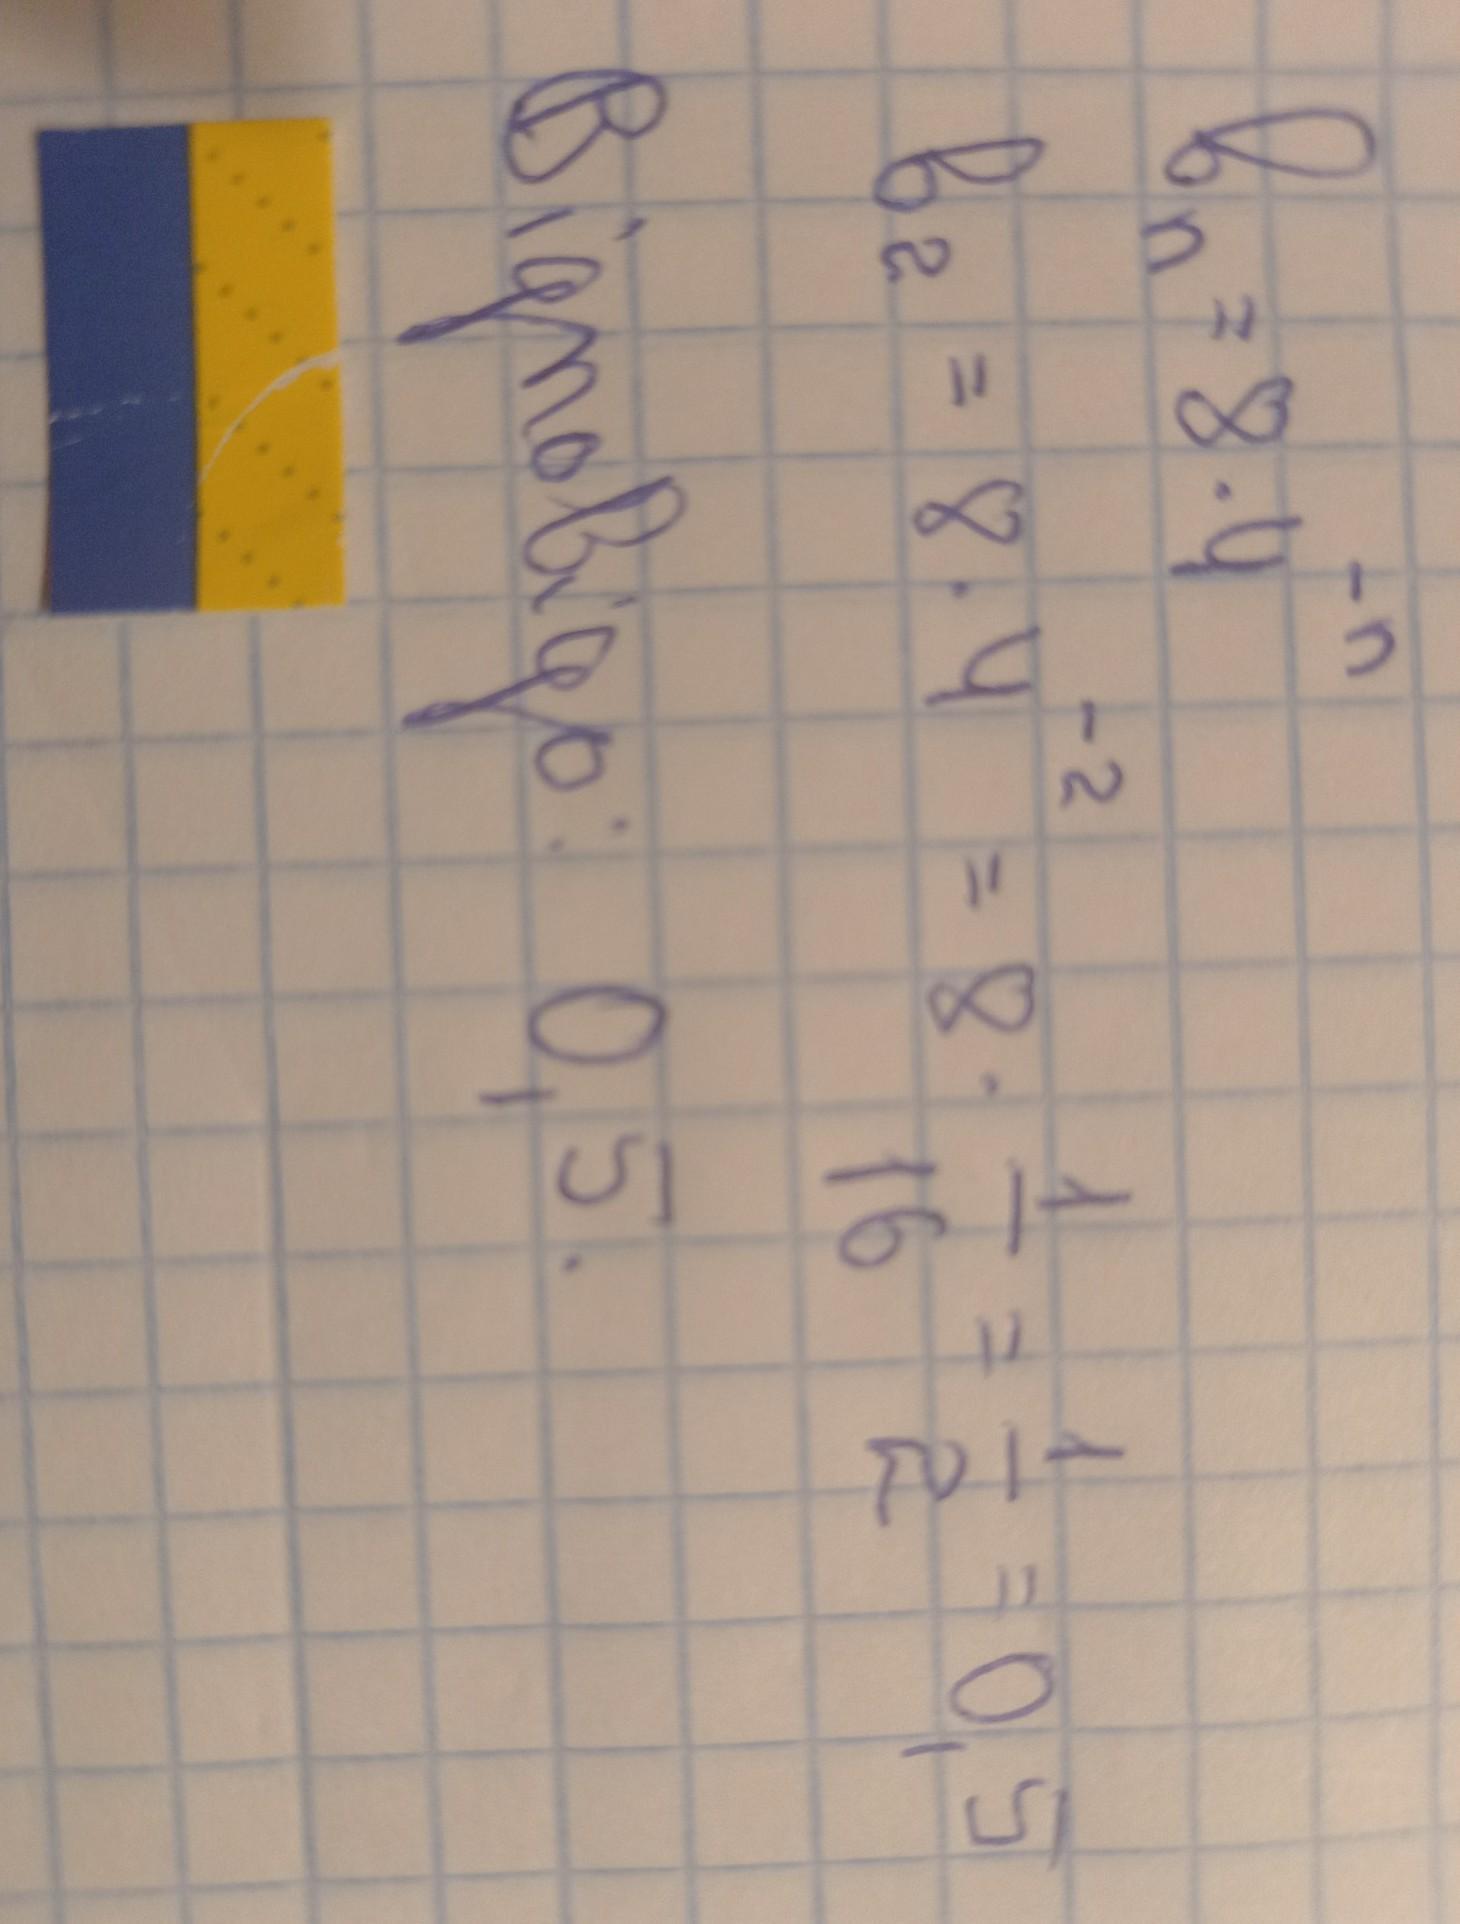 bₙ = 8 · 4⁻ⁿ
b₂ = 8 · 4⁻² = 8 · 1/16 = 1/2 = 0,5
Відповідь: 0,5.